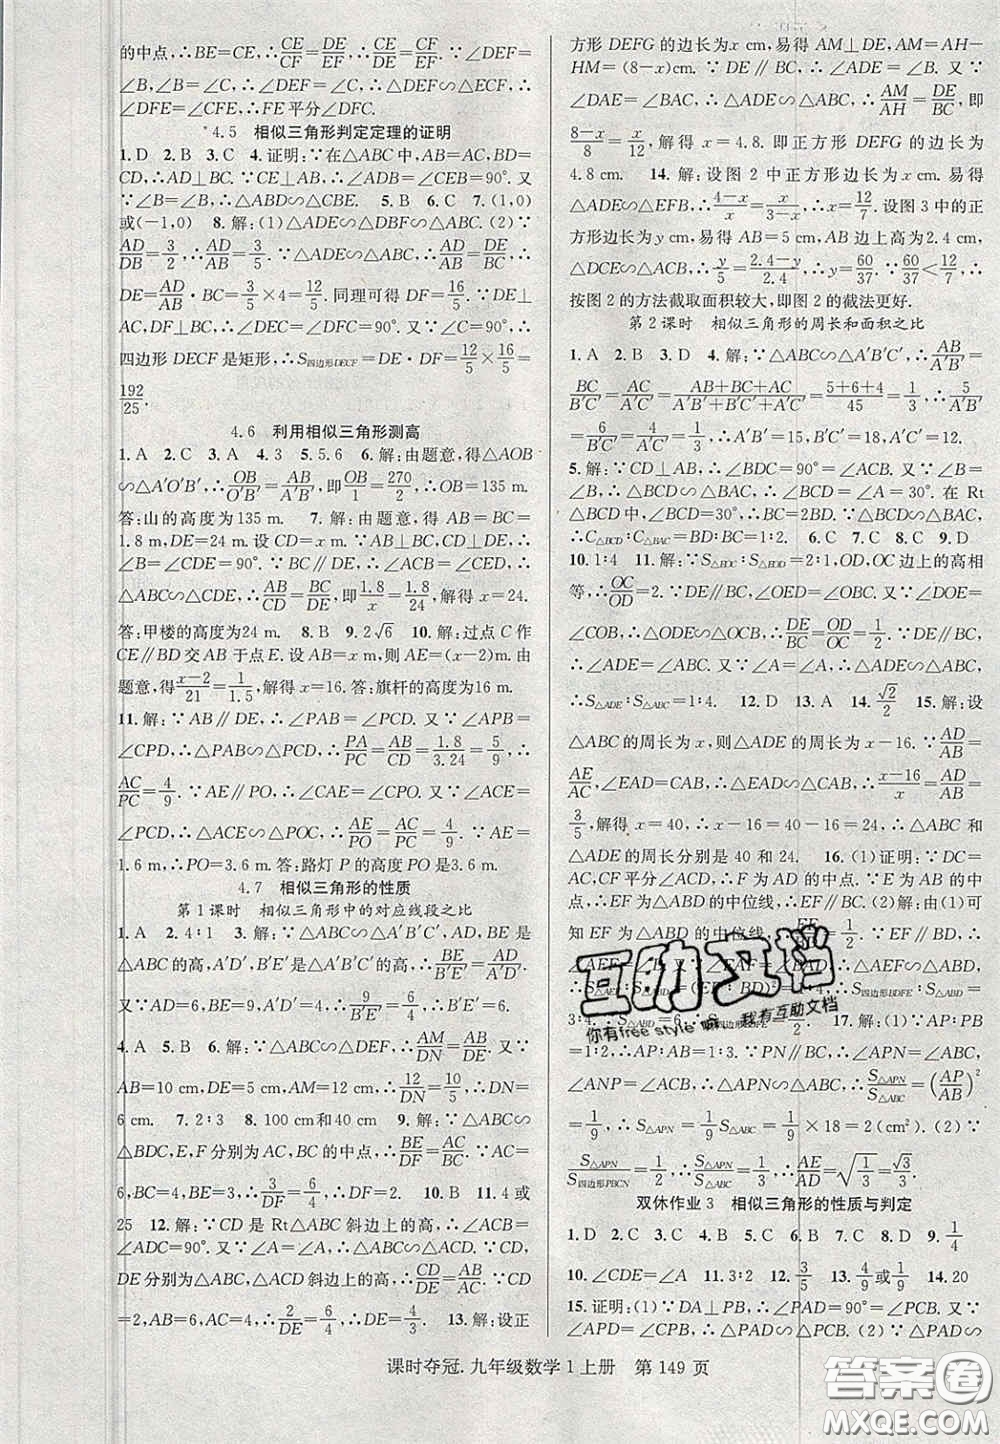 的中点,∴BE=CE,∴CE/EF=DE/EF,∴CE/DE=CF/EF. ∵∠DEF=
∠B,∠B=∠C,∴∠DEF=∠C,∴△DEF∽△ECF,∴
∠DFE=∠CFE,∴FE平分∠DFC.
*4.5 相似三角形判定定理的证明
1.D 2.B 3.C 4.证明:∵在△ABC中,AB=AC,BD=
CD,∴AD⊥BC.∵CE⊥AB,∴∠ADB=∠CEB=90°.又
∵∠B=∠B,∴△ABD∽△CBE. 5.B 6.C 7.(1,0)
或(-1,0) 8.解:(1)△ADE∽△DBF∽△ABC.(2)∵
AD/DB=3/2,∴AD/AB=3/5.∵△ADE∽△ABC,∴AD/AB=DE/BC,∴
DE=AD/AB·BC=3/5×4=12/5.同理可得DF=16/5.∵DE⊥
AC,DF⊥BC,∴∠DEC=∠C=∠DFC=90°,∴
四边形DECF是矩形,∴S四边形DECF=DE·DF=12/5×16/5=
192/25.
4.6 利用相似三角形测高
1.A 2.C 3.A 4.3 5.5.6 6.解:由题意,得△AOB
∽△A′O′B′,∴OB/O′B′=AB/A′B′,即OB/1=270/2,∴OB=135 m.
答:山的高度为135 m. 7.解:由题意,得AB=BC=
1.8 m,DE=24 m.设CD=x m.∵AB⊥BC,CD⊥DE,
∴△ABC∽△CDE,∴AB/CD=BC/DE,即1.8/x=1.8/24,解得x=24.
答:甲楼的高度为24 m. 8.B 9.2√6 10.解:过点C作
CE∥BD交AB于点E.设AB=x m,则AE=(x-2)m.由
题意,得x-2/21=1/1.5,解得x=16.答:旗杆的高度为16 m.
11.解:∵AB∥DE,∴∠PAB=∠PCD.又∵∠APB=
∠CPD,∴△PAB∽△PCD,∴PA/PC=AB/CD=1.8/3.24=5/9,∴
AC/PC=4/9.∵AE∥PO,∴∠CAE=∠CPO.又∵∠ACE=
∠PCD,∴△ACE∽△POC,∴AE/PO=AC/PC=4/9.∵AE=
1.6 m,∴PO=3.6 m.答:路灯P的高度PO是3.6 m.
4.7 相似三角形的性质
第1课时 相似三角形中的对应线段之比
1.A 2.4∶1 3.解:∵△ABC∽△A′B′C′,AD,BE是
△ABC的高,A′D′,B′E′是△A′B′C′的高,∴BE/B′E′=AD/A′D′.
又∵AD=6,BE=9,A′D′=4,∴9/B′E′=6/4,∴B′E′=6.
4.A 5.B 6.解:∵△ABC∽△DEF,∴AM/DN=AB/DE.又∵
AB=10 cm,DE=5 cm,AM=12 cm,∴12/DN=10/5,∴DN=
6 cm. 7.2∶3 8.100 cm和40 cm 9.解:∵△ABC∽△
DBC,E,F分别是AC,BC的中点,∴BE/DF=AC/BC.∵AC=
6,BC=4,BE=3,∴3/DF=6/4,∴DF=2. 10.B 11.4或
25 12.解:∵CD是Rt△ABC斜边上的高,∴∠ACB=
∠ADC=90°.又∵∠A=∠A,∴△ABC∽△ACD.∵CD,
DE分别为△ABC,△ACD斜边上的高,∴CD/DE=AB/AC.∵CD
=2,AB=6,AC=4,∴2/DE=6/4,∴DE=4/3. 13.解:设正
方形DEFG的边长为x cm,易得AM⊥DE,AM=AH-
HM=(8-x)cm.∵DE∥BC,∴∠ADE=∠B.又∵
∠DAE=∠BAC,∴△ADE∽△ABC,∴AM/AH=DE/BC,即
8-x/8=x/12,解得x=4.8.即正方形DEFG的边长为
4.8 cm. 14.解:设图2中正方形边长为x cm,易得
△ADE∽△EFB,∴4-x/x=x/3-x,∴x=12/7.设图3中的正
方形边长为y cm,易得AB=5 cm,AB边上高为2.4 cm,
△DCE∽△ACB,∴y/5=2.4-y/2.4,∴y=60/37.∵60/37<12/7,∴
按图2的方法截取面积较大,即图2的截法更好.
第2课时 相似三角形的周长和面积之比
1.A 2.B 3.D 4.解:∵△ABC∽△A′B′C′,∴AB/A′B′=
BC/B′C′=AC/A′C′=AB+BC+AC/A′B′+B′C′+A′C′=5+6+4/45=1/3,∴5/A′B′=
6/B′C′=1/3,∴A′B′=15,B′C′=18,∴A′C′=12.
5.解:∵CD⊥AB,∴∠BDC=90°=∠ACB.又∵∠B=
∠B,∴△BCD∽△BAC,∴∠BCD=∠A=30°.在Rt
△BCD中,∠BCD=30°,∴BC=2BD.∵△BCD∽△BAC,
∴C△BCD∶C△BAC=BD∶BC=1∶2. 6.C 7.C 8.C 9.D
10.1∶4 11.解:∵S△EOC∶S△EOD=2∶1,OD,OC边上的高相
等,∴OC/OD=2.∵DE∥BC,∴∠OED=∠OBC.又∵∠DOE=
∠COB,∴△ODE∽△OCB,∴DE/BC=OD/OC=1/2.∵DE∥BC,
∴∠ADE=∠ABC.又∵∠A=∠A,∴△ADE∽△ABC,
∴S△ADE∶S△ABC=1∶4. 12.D 13.A 14.√2/2 15.解:设
△ABC的周长为x,则△ADE的周长为x-16.∵AD/AB=
AE/AC,∠EAD=∠CAB,∴△ABC∽△ADE,∴x-16/x=AD/AB=
3/5,解得x=40,∴x-16=40-16=24,∴△ABC和
△ADE的周长分别是40和24. 16.(1)证明:∵DC=
AC,CF平分∠ACD,∴F为AD的中点.∵E为AB的中
点,∴EF为△ABD的中位线,∴EF∥BC.(2)解:由(1)可
知EF为△ABD的中位线,∴EF/BD=1/2.∵EF∥BD,∴
△AEF
=1/4,∴S四边形BDFE∶S△ABD=
3∶4.
17.解:(1)∵AP∶PB
=1∶2,∴AP∶AB=1∶3.∵PN∥BC,∴∠APN=∠ABC,
∠ANP=∠ACB,∴△APN∽△ABC,∴S△APN/S△ABC=(AP/AB)²
=1/9,∴S△APN=1/9S△ABC=1/9×18=2(cm²).(2)∵
S△APN/S四边形PBCN=1/2,∴S△APN/S△ABC=1/3,∴AE/AD=√1/3=√3/3.
双休作业3 相似三角形的性质与判定
1.D 2.C 3.D 4.C 5.B 6.B 7.B 8.D 9.1/4
10.∠CDE=∠A 11.3∶2 12.3/5 13.4/9或1/9 14.20
15.证明:(1)∵DA⊥PB,∴∠PAD=90°=∠PCB.又∵
∠APD=∠CPB,∴△PAD∽△PCB.(2)∵△PAD∽
互助文档
你有free style嘛 我有互助文档
课时夺冠.九年级数学1上册 第149页
答案圈
MXQE.COM